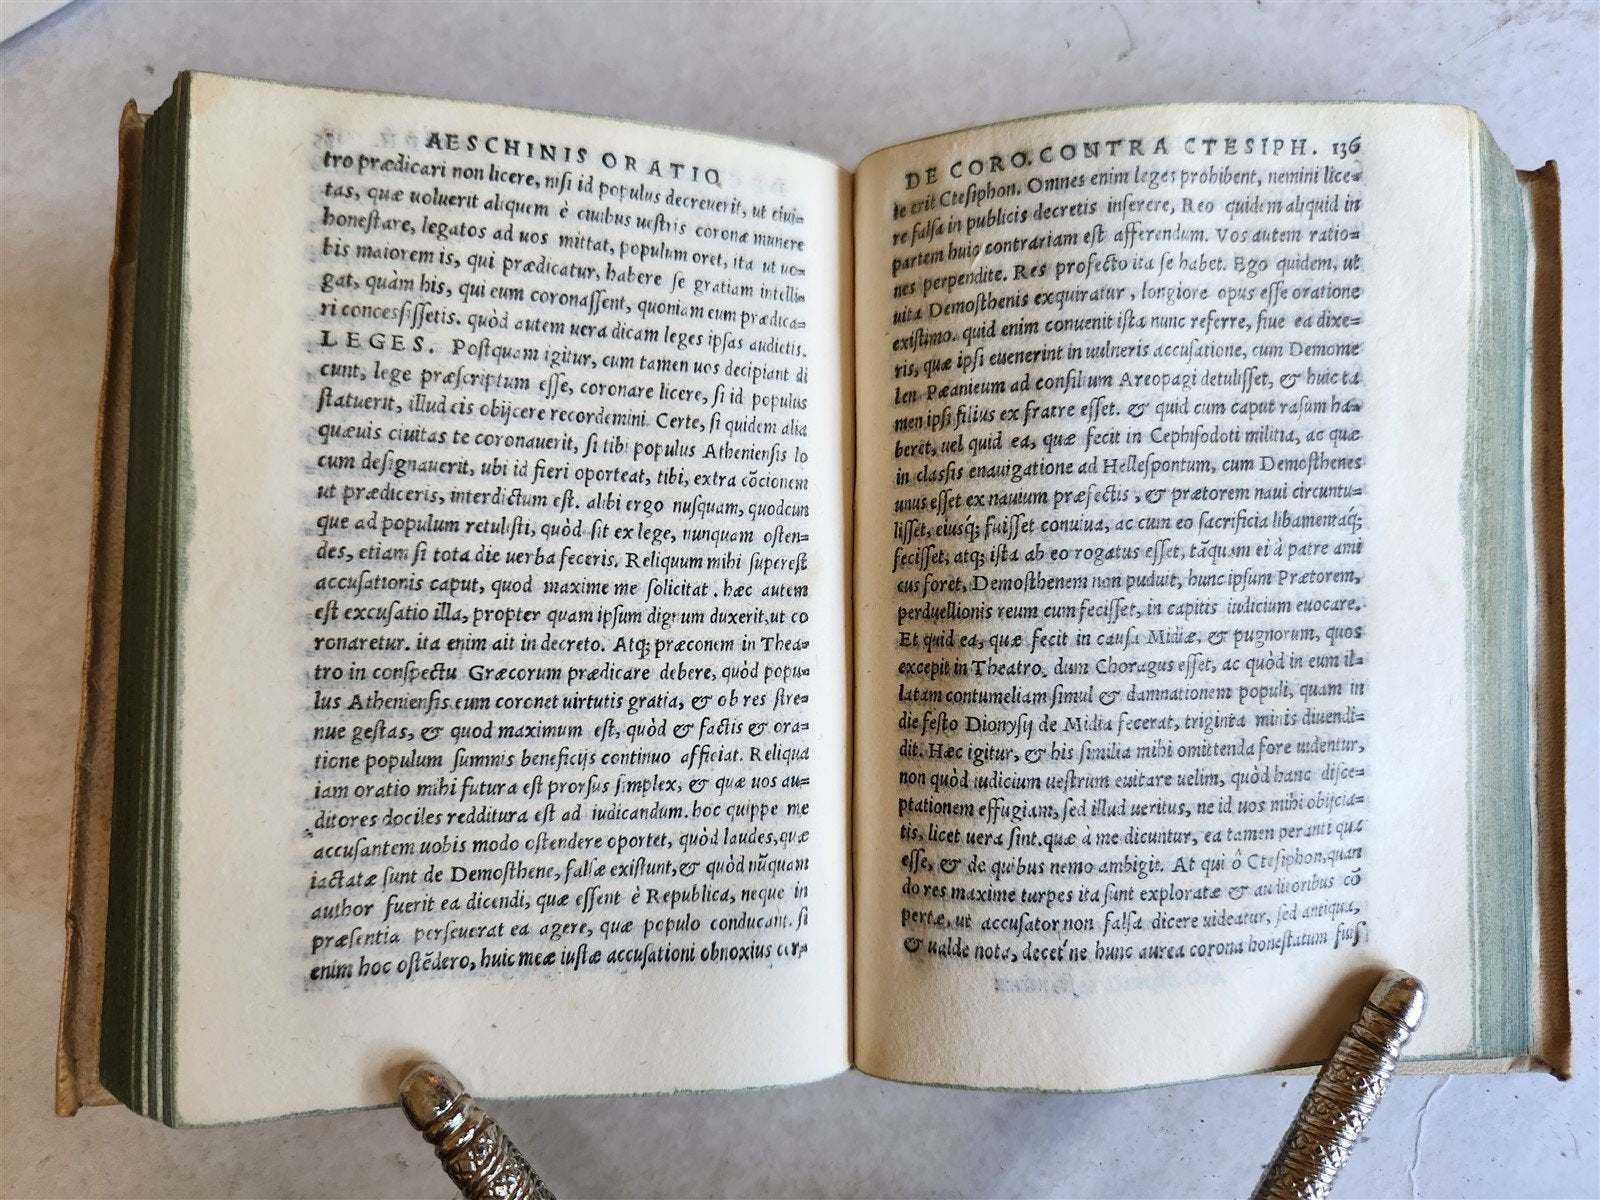 AESCHINIS ORATIO
tro prædicari non licere, nisi id populus decreuerit, ut ciui-
tas, quæ uoluerit aliquem è ciuibus uestris coronæ munere
honestare, legatos ad uos mittat, populum oret, ita ut uo-
bis maiorem is, qui prædicatur, habere se gratiam intelli-
gat, quàm his, qui eum coronassent, quoniam eum prædica-
ri concesßissetis. quòd autem uera dicam leges ipsas audietis.
LEGES. Postquam igitur, cum tamen uos decipiant di
cunt, lege præscriptum esse, coronare licere, si id populus
statuerit, illud eis obijcere recordemini. Certe, si quidem alia
quæuis ciuitas te coronauerit, si tibi populus Atheniensis lo
cum designauerit, ubi id fieri oporteat, tibi, extra cōcionem
ut prædiceris, interdictum est. alibi ergo nusquam, quodcun
que ad populum retulisti, quòd sit ex lege, nunquam osten-
des, etiam si tota die uerba feceris. Reliquum mihi superest
accusationis caput, quod maxime me solicitat. hæc autem
est excusatio illa, propter quam ipsum dignum duxerit, ut co
ronaretur. ita enim ait in decreto. Atq; præconem in Thea-
tro in conspectu Græcorum prædicare debere, quòd popu-
lus Atheniensis eum coronet uirtutis gratia, & ob res stre-
nue gestas, & quod maximum est, quòd & factis & ora-
tione populum summis beneficijs continuo afficiat. Reliqua
iam oratio mihi futura est prorsus simplex, & quæ uos au-
ditores dociles redditura est ad iudicandum. hoc quippe me
accusantem uobis modo ostendere oportet, quòd laudes, quæ
iactatæ sunt de Demosthene, falsæ existunt, & quòd nūquam
author fuerit ea dicendi, quæ essent è Republica, neque in
præsentia perseuerat ea agere, quæ populo conducant. si
enim hoc ostēdero, huic meæ iustæ accusationi obnoxius cer-
DE CORO. CONTRA CTESIPH. 136
te erit Ctesiphon. Omnes enim leges prohibent, nemini lice-
re falsa in publicis decretis inserere, Reo quidem aliquid in
partem huic contrariam est afferendum. Vos autem ratio-
nes perpendite. Res profecto ita se habet. Ego quidem, ut
uita Demosthenis exquiratur, longiore opus esse oratione
existimo. quid enim conuenit ista nunc referre, siue ea dixe-
ris, quæ ipsi euenerint in uulneris accusatione, cum Demome
len Pæanieum ad consilium Areopagi detulisset, & huic ta
men ipsi filius ex fratre esset. & quid cum caput rasum ha-
beret, uel quid ea, quæ fecit in Cephisodoti militia, ac quæ
in classis enauigatione ad Hellespontum, cum Demosthenes
unus esset ex nauium præfectis, & prætorem naui circuntu-
lisset, eiusq; fuisset conuiua, ac cum eo sacrificia libamentaq;
fecisset, atq; ista ab eo rogatus esset, tāquam ei à patre ami
cus foret, Demosthenem non puduit, hunc ipsum Prætorem,
perduellionis reum cum fecisset, in capitis iudicium euocare.
Et quid ea, quæ fecit in causa Midiæ, & pugnorum, quos
excepit in Theatro, dum Choragus esset, ac quòd in eum il-
latam contumeliam simul & damnationem populi, quam in
die festo Dionysij de Midia fecerat, triginta minis diuendi-
dit. Hæc igitur, & his similia mihi omittenda fore uidentur,
non quòd iudicium uestrum euitare uelim, quòd hanc disce-
ptationem effugiam, sed illud ueritus, ne id uos mihi obijcia-
tis, licet uera sint. quæ à me dicuntur, ea tamen perantiqua
esse, & de quibus nemo ambigit. At qui ô Ctesiphon, quan
do res maxime turpes ita sunt exploratæ & auditoribus cō
pertæ, ut accusator non falsa dicere uideatur, sed antiqua,
& ualde nota, decet ne hunc aurea corona honestatum fuis